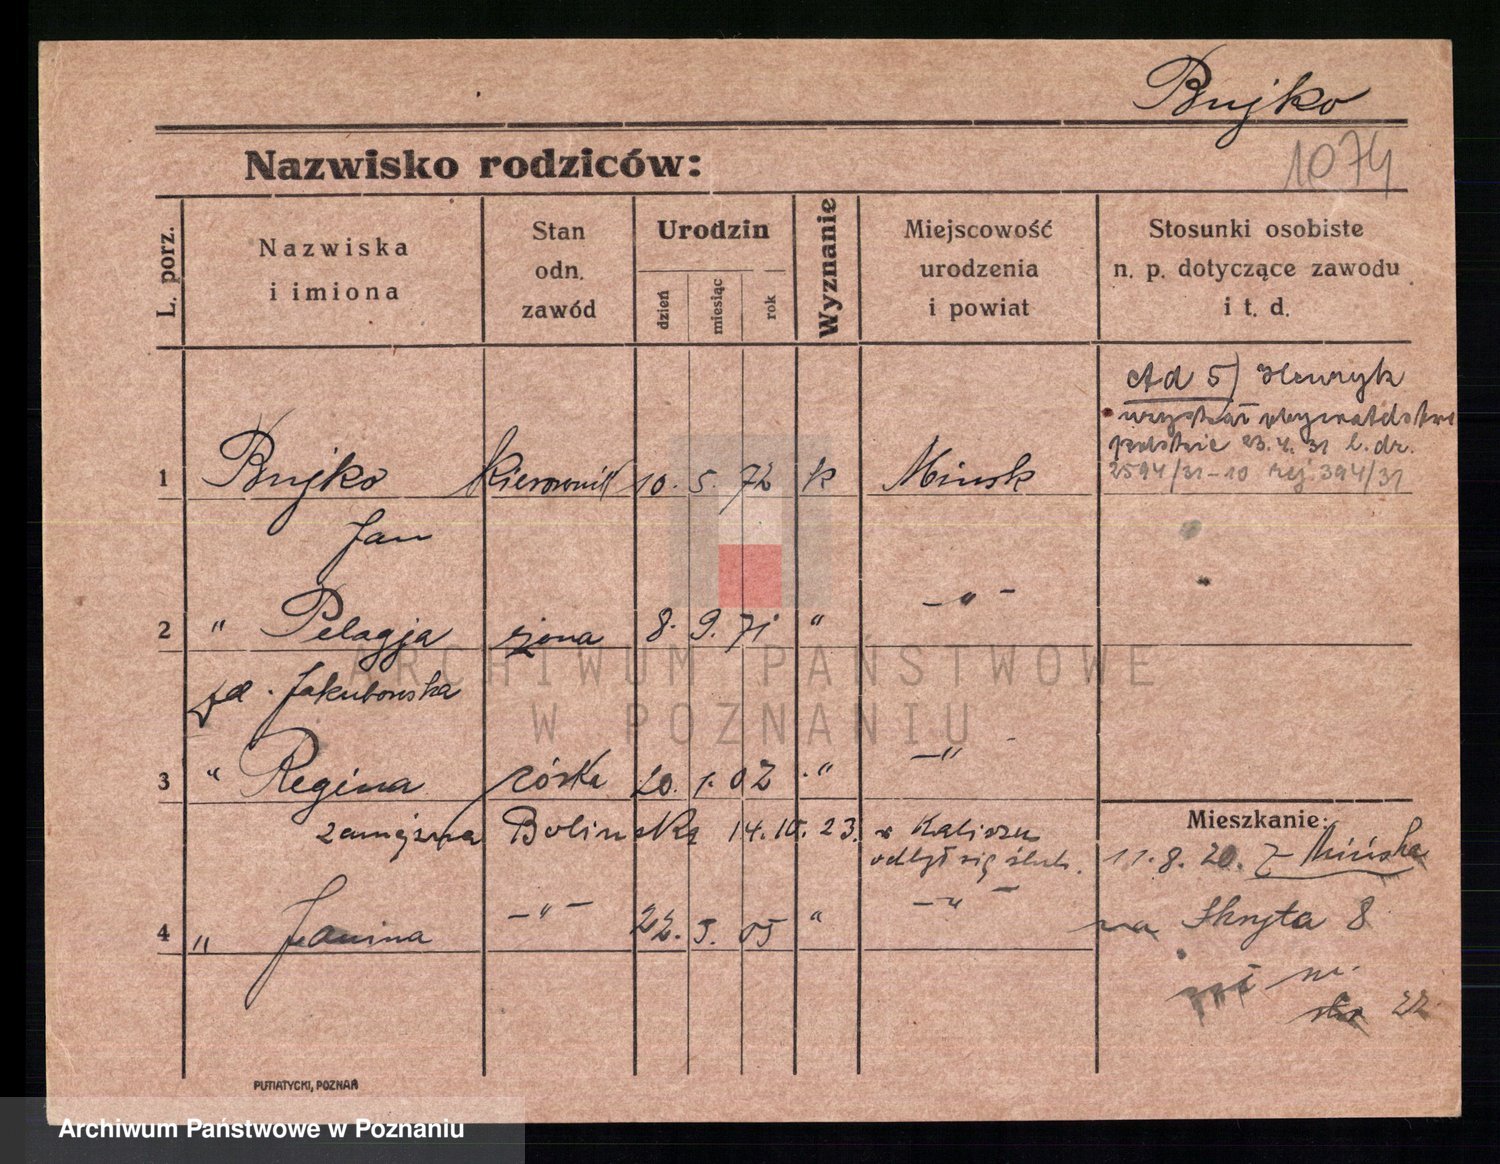 Bujko
1074
Nazwisko rodziców:
L. porz.
Nazwiska
i imiona
Stan
odn.
zawód
Urodzin
dzień
miesiąc
rok
Wyznanie
Miejscowość
urodzenia
i powiat
Stosunki osobiste
n. p. dotyczące zawodu
i t. d.
Ad 5) Henryk
uzyskał obywatelstwo
polskie 23.4.31 l. dr.
2594/31-10 rej 394/31
1 Bujko kierownik 10. 5. 72 k Minsk
Jan
2 " Pelagja żona 8. 9. 71 " -"-
Jakubowska
3 " Regina córka 20. 1. 02 " -"-
zamężna Bolinska 14.10.23. w Kaliszu
odbył się ślub.
4 " Janina -"- 22. 5. 05 " -"-
Mieszkanie:
11.8.20. z Mińska
na Skryta 8
22
PUTIATYCKI, POZNAŃ
ARCHIWUM PAŃSTWOWE
W POZNANIU
Archiwum Państwowe w Poznaniu